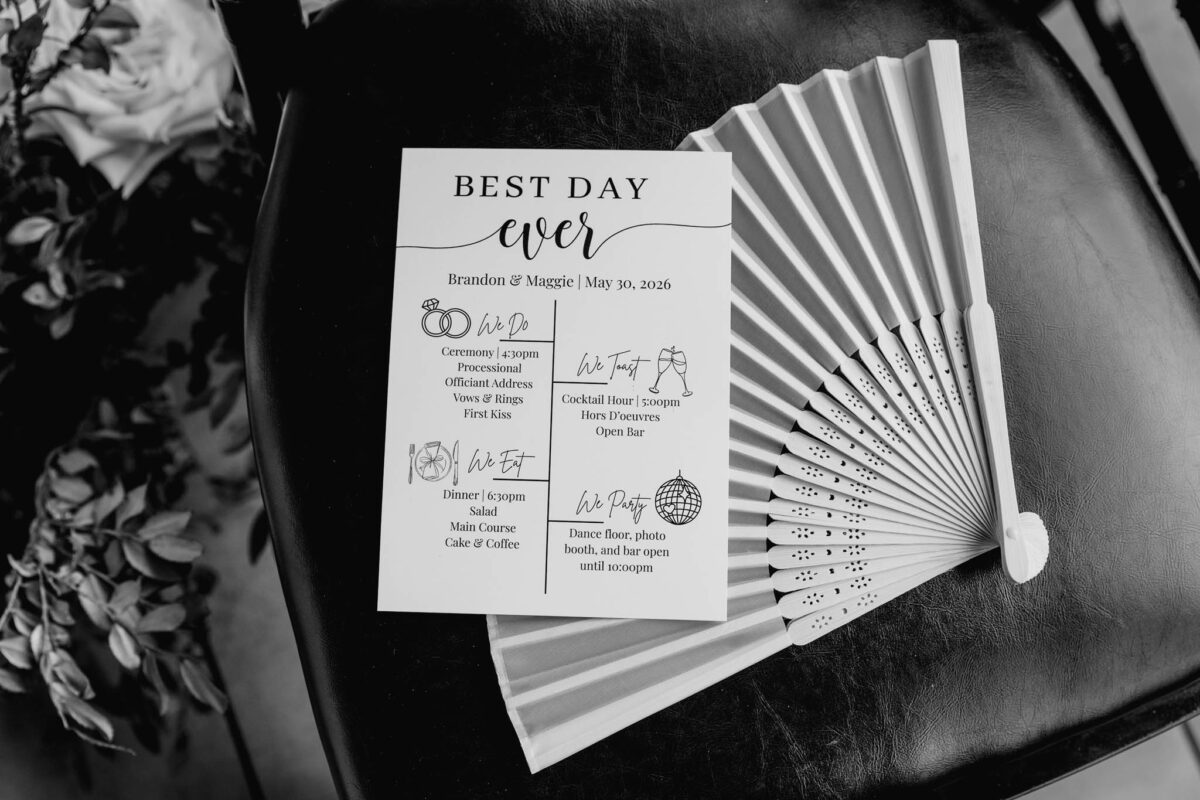 BEST DAY
ever
Brandon & Maggie | May 30, 2026
We Do
Ceremony | 4:30pm
Processional
Officiant Address
Vows & Rings
First Kiss
We Toast
Cocktail Hour | 5:00pm
Hors D'oeuvres
Open Bar
We Eat
Dinner | 6:30pm
Salad
Main Course
Cake & Coffee
We Party
Dance floor, photo
booth, and bar open
until 10:00pm